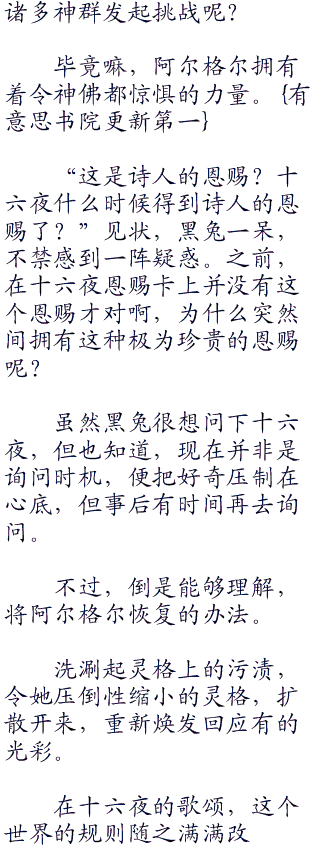 诸多神群发起挑战呢？
毕竟嘛，阿尔格尔拥有
着令神佛都惊惧的力量。{有
意思书院更新第一}
“这是诗人的恩赐？十
六夜什么时候得到诗人的恩
赐了？”见状，黑兔一呆，
不禁感到一阵疑惑。之前，
在十六夜恩赐卡上并没有这
个恩赐才对啊，为什么突然
间拥有这种极为珍贵的恩赐
呢？
虽然黑兔很想问下十六
夜，但也知道，现在并非是
询问时机，便把好奇压制在
心底，但事后有时间再去询
问。
不过，倒是能够理解，
将阿尔格尔恢复的办法。
洗涮起灵格上的污渍，
令她压倒性缩小的灵格，扩
散开来，重新焕发回应有的
光彩。
在十六夜的歌颂，这个
世界的规则随之满满改